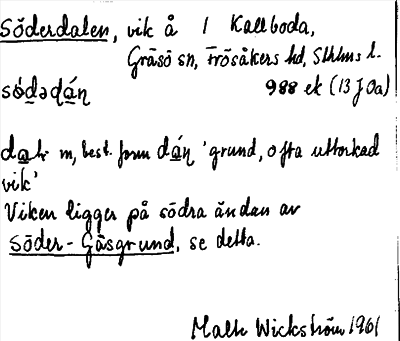 Söderdalen, vik å 1 Kallboda,
Gräsö sn, Frösåkers hd, Sthlms l.
sǿdədán 988 ek (13 J 0a)
dal m, best. form dán 'grund, ofta uttorkad
vik'
Viken ligger på södra ändan av
Söder-Gåsgrund, se detta.
Malte Wickström 1961